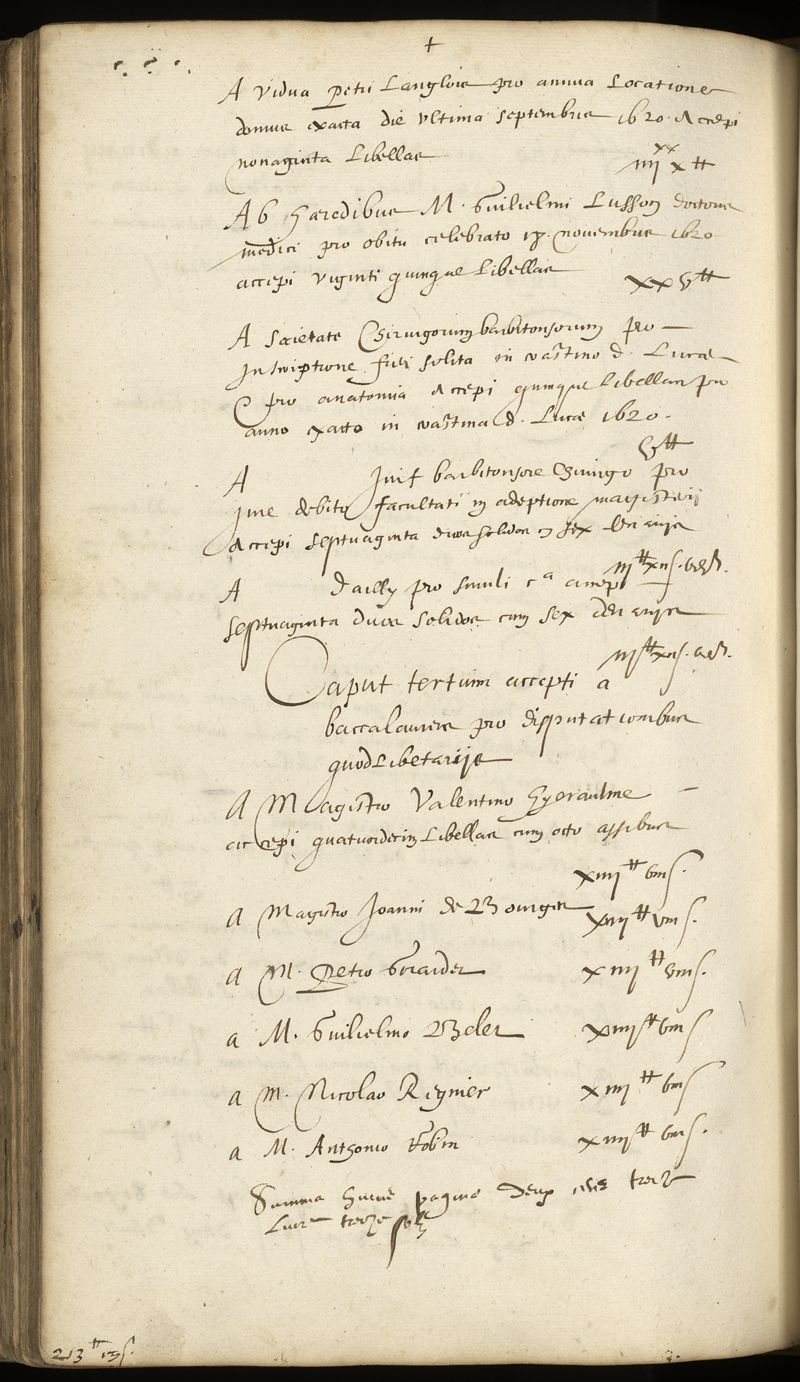 +
A vidua petri Langlois pro annua Locatione
domus exacta die ultima septembris 1620. Accepi
nonaginta Libellas
iiii xx x ₶
Ab Hæredibus M. Guilielmi Lusson doctoris
medici pro obitu celebrato novembris 1620
accepi viginti quinque Libellas
xxv ₶
A societate Chirurgorum barbitonsorum pro
Inscriptione fieri solita in crastino d. Lucæ
& pro anatomia Accepi quinque Libellas pro
anno exacto in crastina d. Lucæ 1620.
v ₶
A barbitonsore Chirurgo pro
jure debito facultati in adeptione magisterii
Accepi septuaginta duos solidos cum sex denarijs
iii ₶ xii s. vi d.
A Dailly pro simili cª accepi
septuaginta duos solidos cum sex denarijs
iii ₶ xii s. vi d.
Caput tertium accepti a
baccalaureis pro disputationibus
quodLibetarijs
A Magistro Valentino Hyeraulme
accepi quatuordecim Libellas cum octo assibus
xiiii ₶ viii s.
a Magistro Joanni de Bourges xiiii ₶ viii s.
a M. Petro Girardet xiiii ₶ viii s.
a M. Guilielmo Belet xiiii ₶ viii s
a M. Nicolao Regnier xiiii ₶ viii s
a M. Anthonio Robin xiiii ₶ viii s.
Summa huius pagine deux cens treize
Livres treize solz
213 ₶ 13 s.